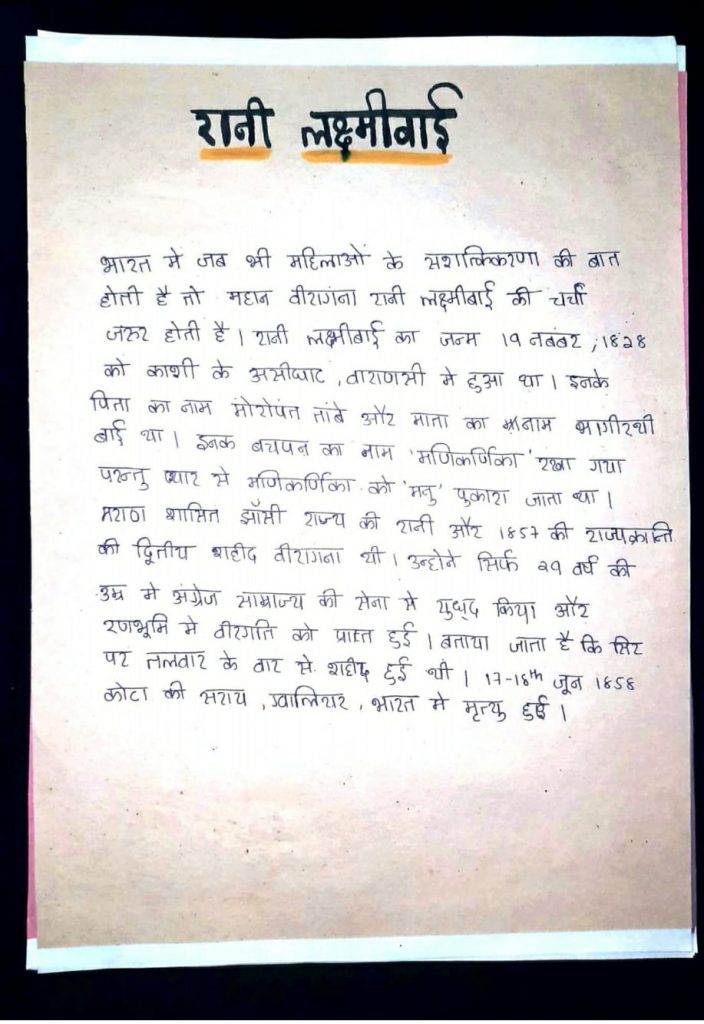 रानी लक्ष्मीबाई
भारत मे जब भी महिलाओं के सशात्किकरण की बात
होती है तो महान वीरागंना रानी लक्ष्मीबाई की चर्चा
जरुर होती है। रानी लक्ष्मीबाई का जन्म 19 नवबंर, 1828
को काशी के असीघाट, वाराणसी मे हुआ था। इनके
पिता का नाम मोरोपंत तांबे और माता का नाम भागीरथी
बाई था। इनक बचपन का नाम 'मणिकर्णिका' रखा गया
परन्तु प्यार से मणिकर्णिका को 'मनु' पुकारा जाता था।
मराठा शासित झाँसी राज्य की रानी और 1857 की राज्यक्रान्ति
की द्वितीय शहीद वीरागंना थी। उन्होने सिर्फ २९ वर्ष की
उम्र मे अंग्रेज साम्राज्य की सेना से युध्द किया और
रणभूमि मे वीरगति को प्राप्त हुई। बताया जाता है कि सिर
पर तलवार के वार से शहीद हुई थी। 17-18th जून 1858
कोटा की सराय, ग्वालियर, भारत मे मृत्यु हुई।